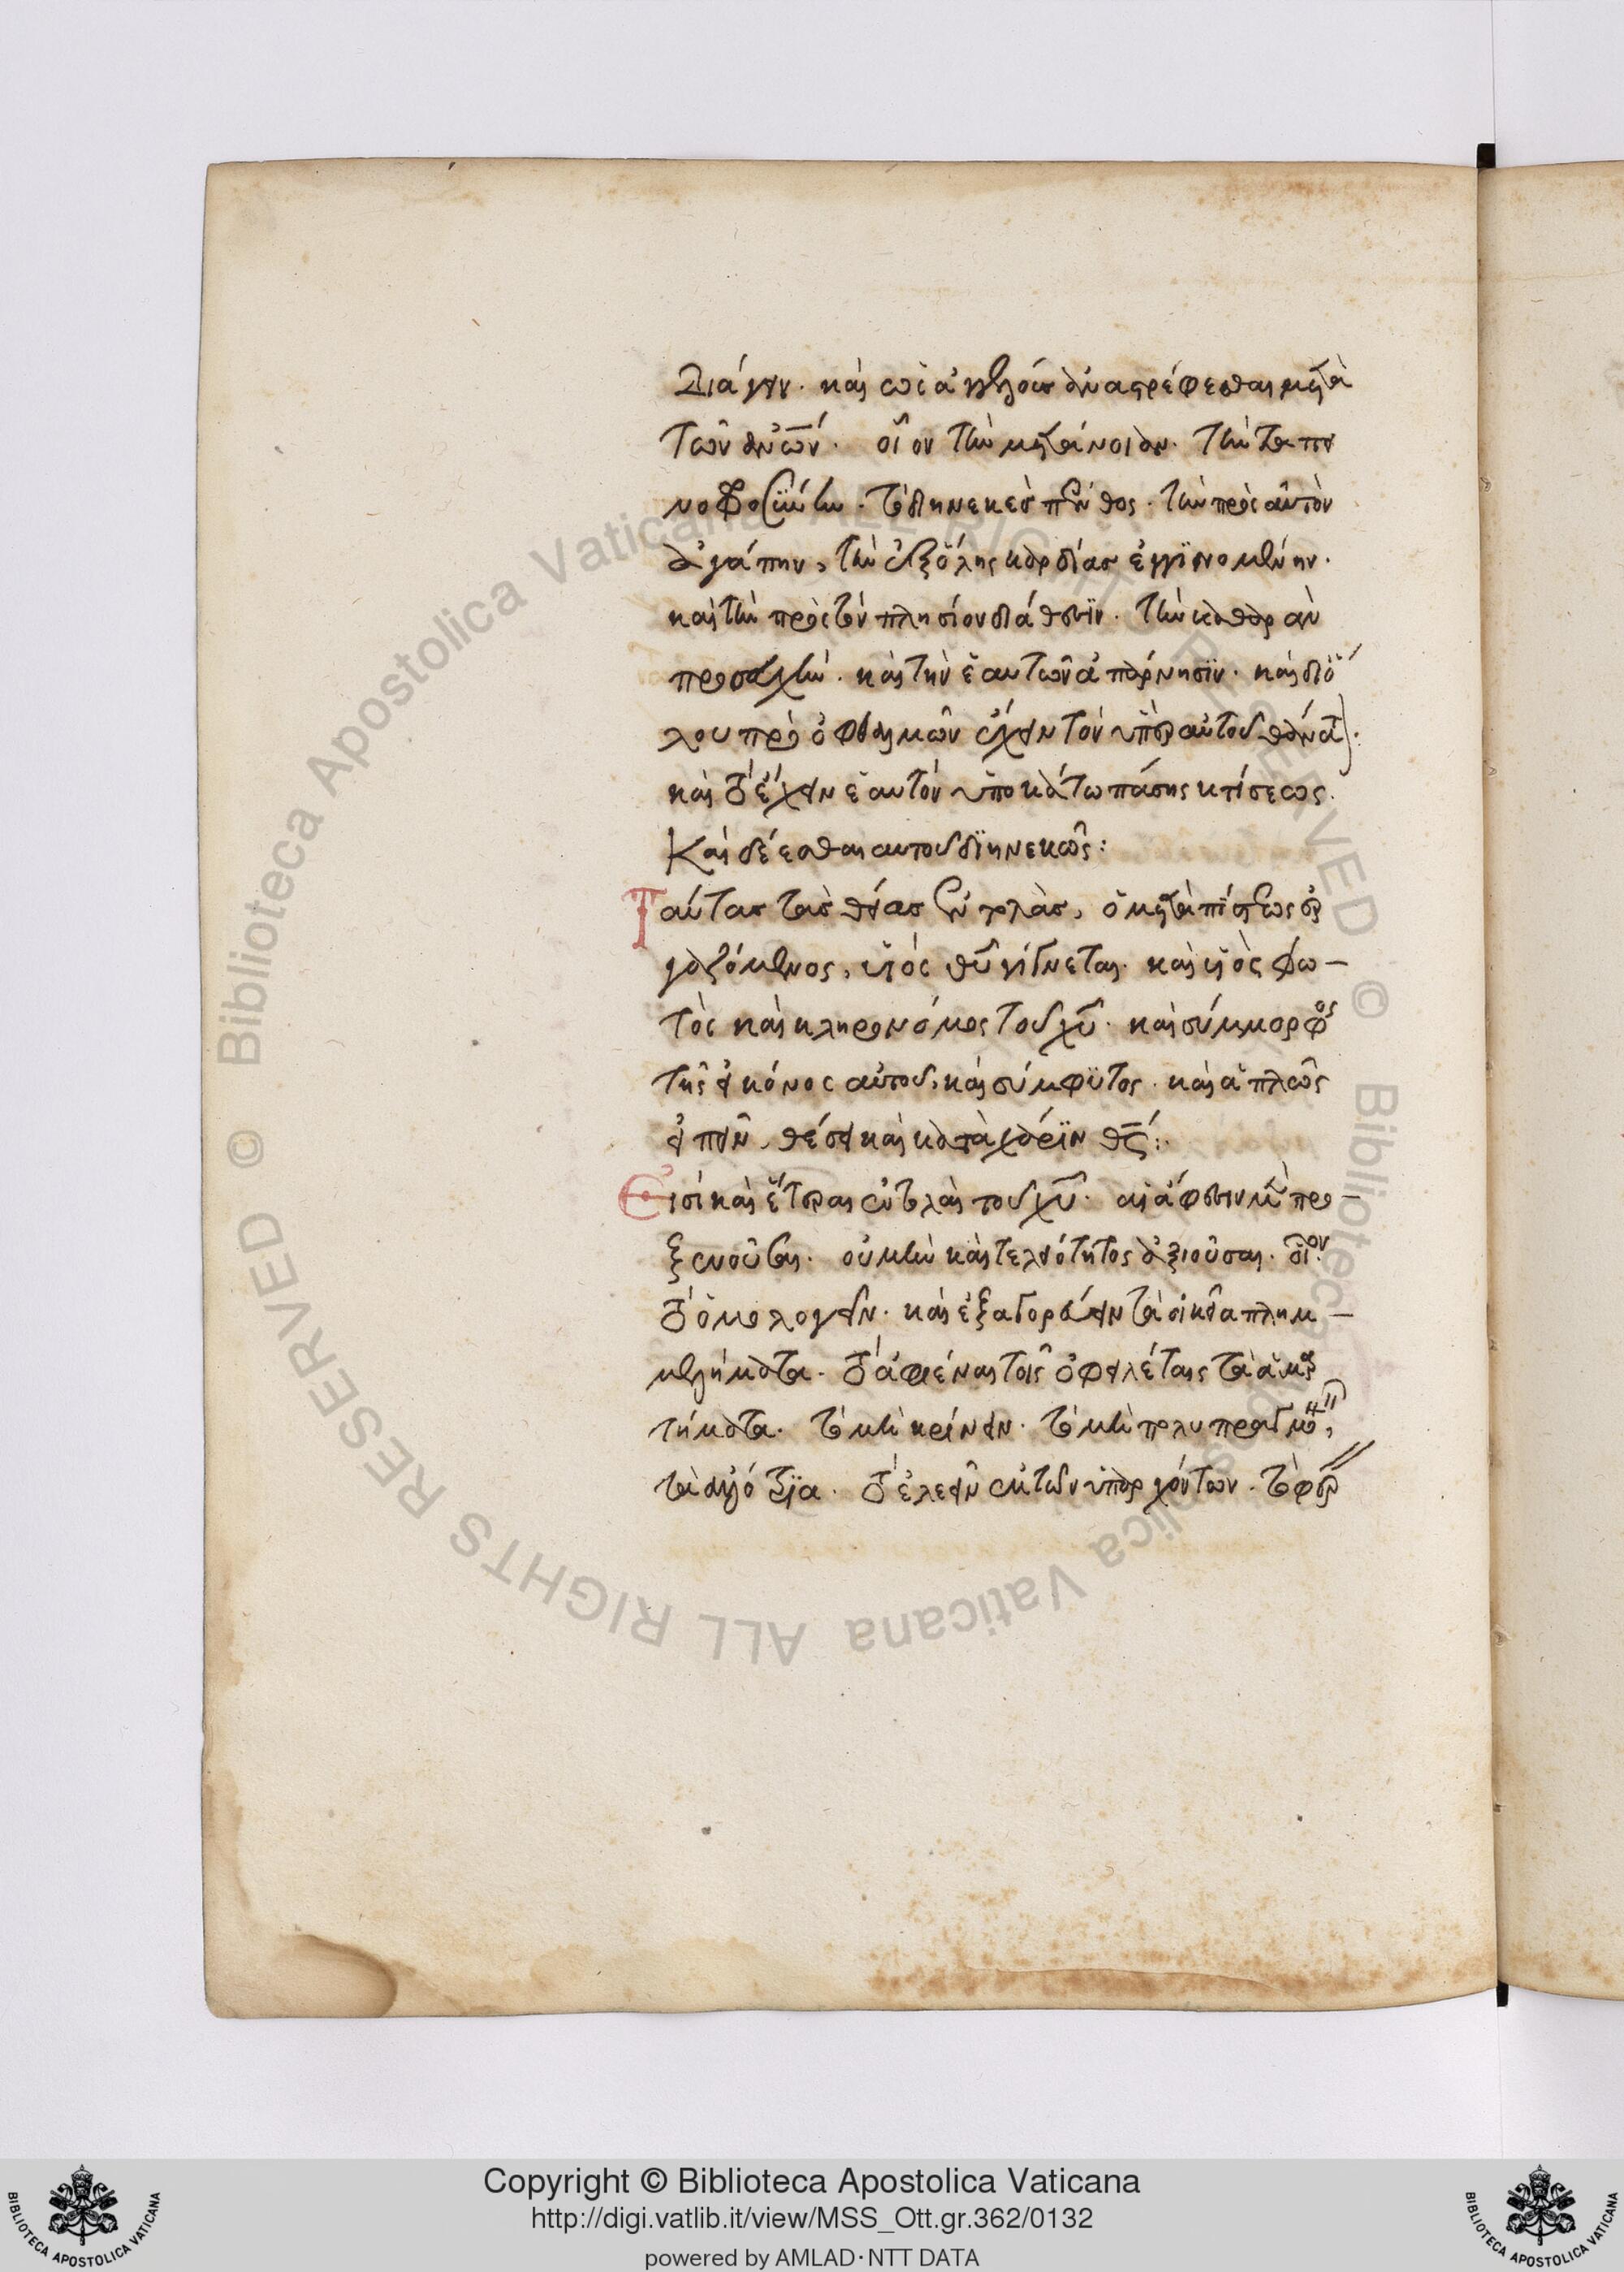 διάγειν. καὶ ὡς ἀγγέλους ἀναστρέφεσθαι μετὰ
τῶν ἀνῶν. οἷον τὴν μετάνοιαν. τὴν ταπει
νοφροσύνην. τὸ διηνεκὲς πένθος. τὴν πρὸς αὐτὸν
ἀγάπην, τὴν ἐξ ὅλης καρδίας ἐγγινομένην.
καὶ τὴν πρὸς τὸν πλησίον διάθεσιν. τὴν καθαρὰν
προσευχὴν. καὶ τὴν ἑαυτῶν ἀπάρνησιν. καὶ διὸ
λου πρὸ ὀφθαλμῶν ἔχειν τὸν ὑπὲρ αὐτοῦ θάνατ.
καὶ τὸ ἔχειν ἑαυτὸν ὑποκάτω πάσης κτίσεως.
Καὶ δέεσθαι αὐτοῦ διηνεκῶς:
Ταύτας τὰς θείας ἐντολὰς, ὁ μετὰ πίστεως ἐρ
γαζόμενος, υἱὸς θυ γίγνεται. καὶ υἱὸς φω–
τὸς καὶ κληρονόμος τοῦ χυ. καὶ σύμμορφος
τῆς εἰκόνος αὐτοῦ, καὶ σύμφυτος. καὶ ἁπλῶς
εἰπεῖν, θέσει καὶ κατὰ χάριν θς:
Εἰσὶ καὶ ἕτεραι ἐντολαὶ τοῦ χυ. αἳ ἄφεσιν μὲν προ–
ξενοῦσαι. οὐ μὴν καὶ τελειότητος ἀξιοῦσαι. οἷον
τὸ ὁμολογεῖν. καὶ ἐξαγορεύειν τὰ οἰκεῖα πλημ–
μελήματα. τὸ ἀφιέναι τοῖς ὀφειλέταις τὰ ἁμαρ
τήματα. τὸ μὴ κρίνειν. τὸ μὴ πολυπραγμο,
τὰ ἀλλότρια. τὸ ἐλεεῖν ἐκ τῶν ὑπαρχόντων. τὸ φέρ